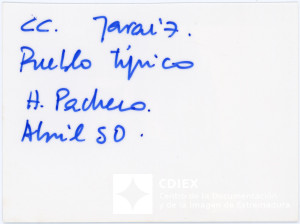 CC. Jaraiz.
Pueblo típico
H. Pacheco.
Abril 50.
CDIEX